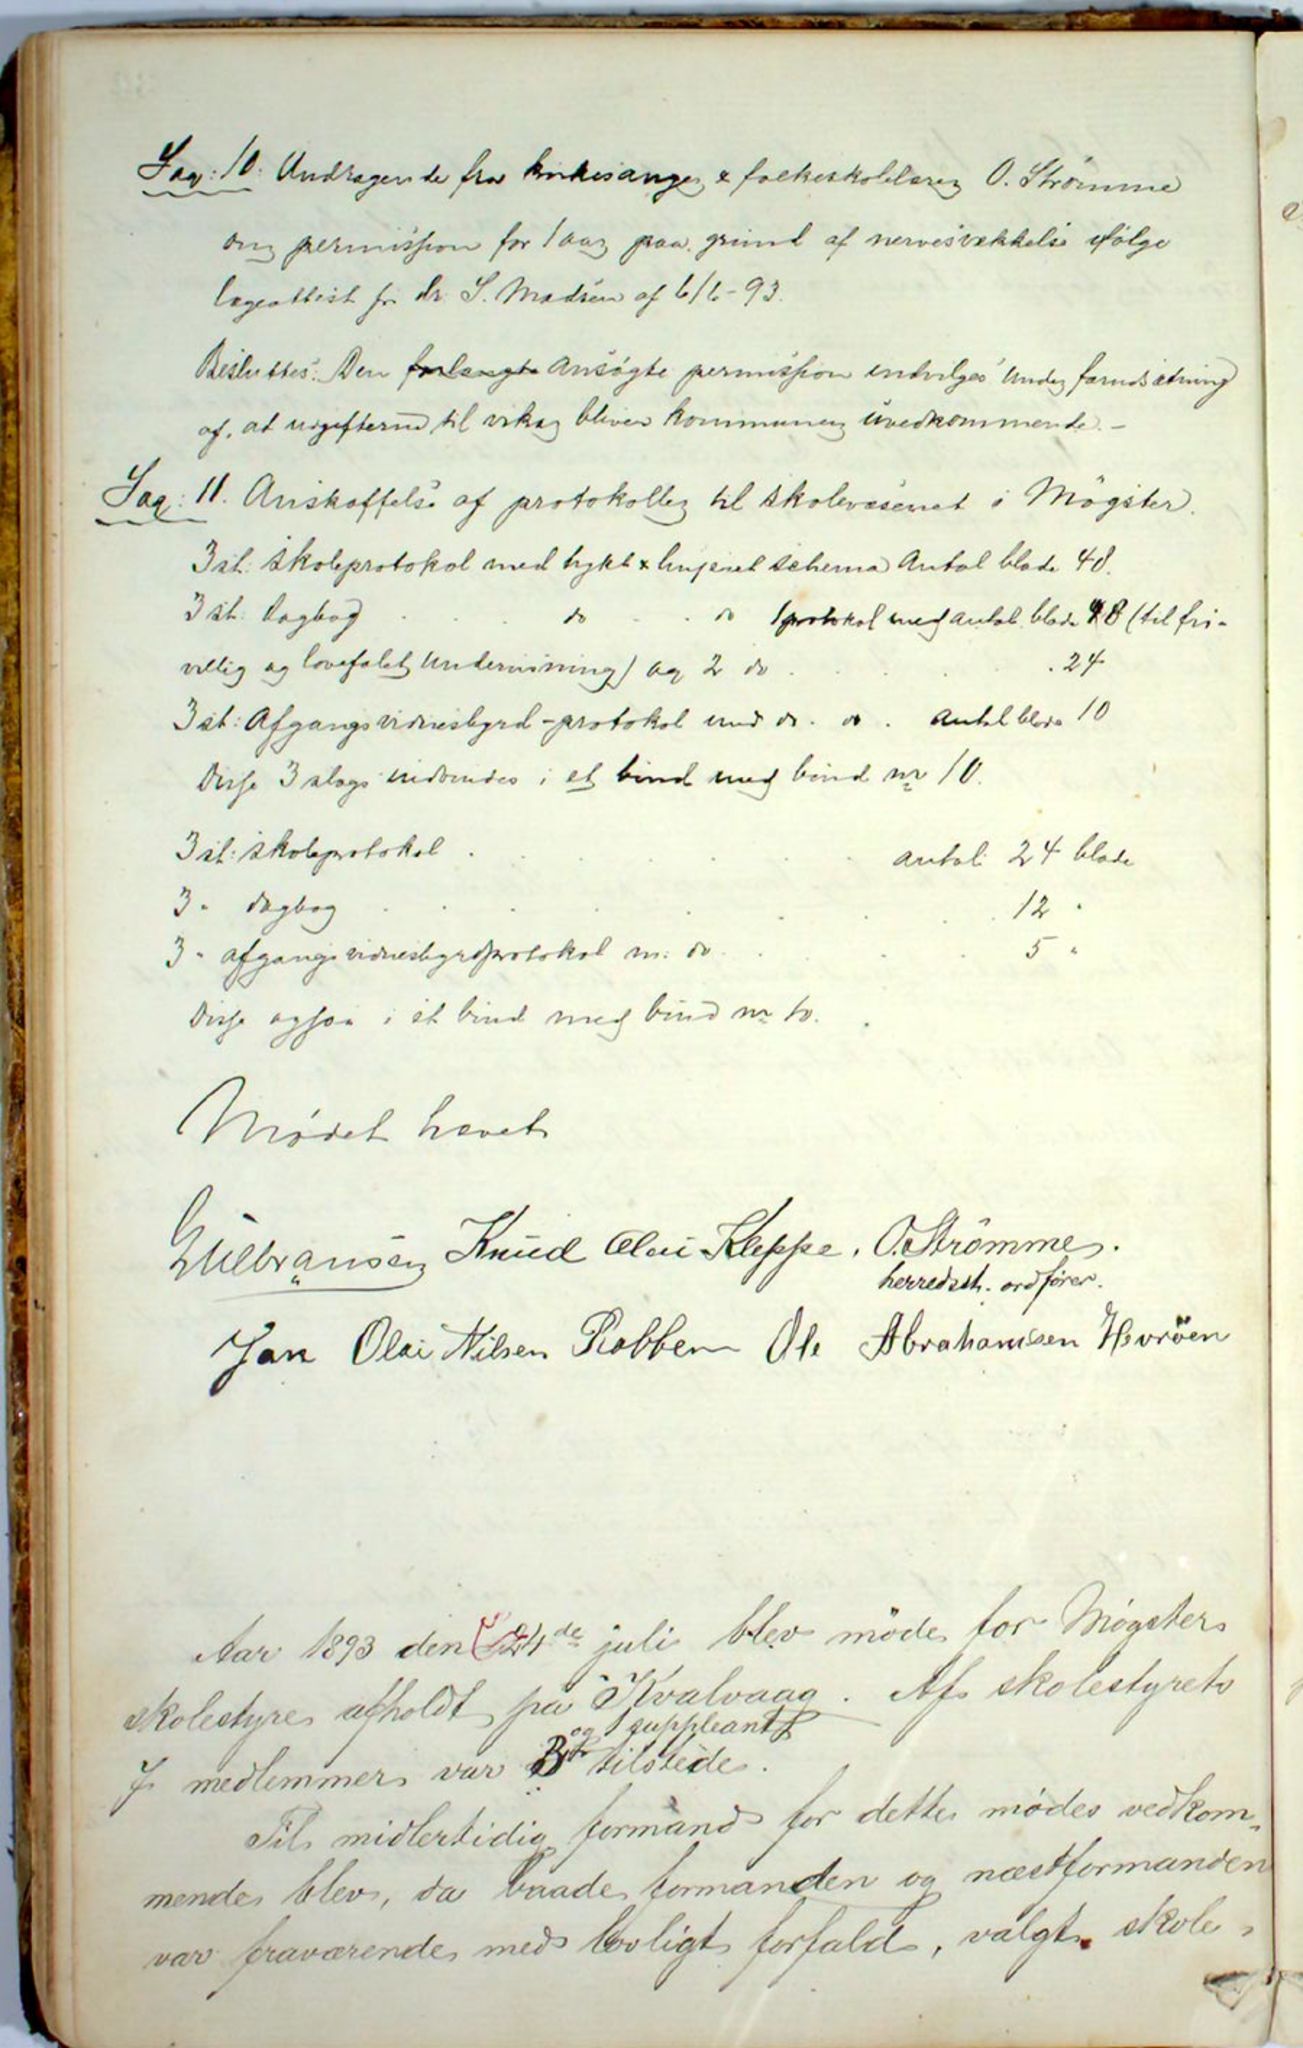 Sag: 10. Andragende fra kirkesanger & folkeskolelærer O. Strömme
om permission for 1 aar paa grund af nervesvækkelse ifölge
lægeattest fr dr. S. Madsen af 6/6-93.
Besluttes: Den forlangte ansögte permission indvilges under forudsætning
af, at udgifterne til vikar bliver kommunen uvedkommende.-
Sag: 11. Anskaffelse af protokoller til skolevæsenet i Mögster.
3 st: skoleprotokol med trykt & linjeret schema Antal blade 48.
3 st: Dagbog . . . do . . do 1 protokol med antal blade 48 (til fri-
villig og lovbefalet undervisning) og 2 do . . . . 24
3 st: Afgangsvidnesbyrd-protokol med do. do. antal blade 10
Disse 3 slags indbindes i et bind med bind nr 10.
3 st: skoleprotokol . . . . . . antal 24 blade
3 " dagbog . . . . . . . . 12 "
3 " afgangsvidnesbyrdprotokol m: do . . . . 5 "
Disse ogsaa i et bind med bind nr 10.
Mødet hævet
Gulbransen Knud Olai Kleppe. O. Strömme.
herredsst. ordfører.
Jan Olai Nilsen Rabben Ole Abrahamsen Hevröen
Aar 1893 den 24de juli blev möde for Møgster
skolestyre afholdt på Kvalvaag. Af skolestyrets
og 1 suppleant
7 medlemmer var 3 tilstede.
Til midlertidig formand for dette mødes vedkom-
mende blev, da baade formanden og næstformanden
var fraværende med lovligt forfald, valgt skole-